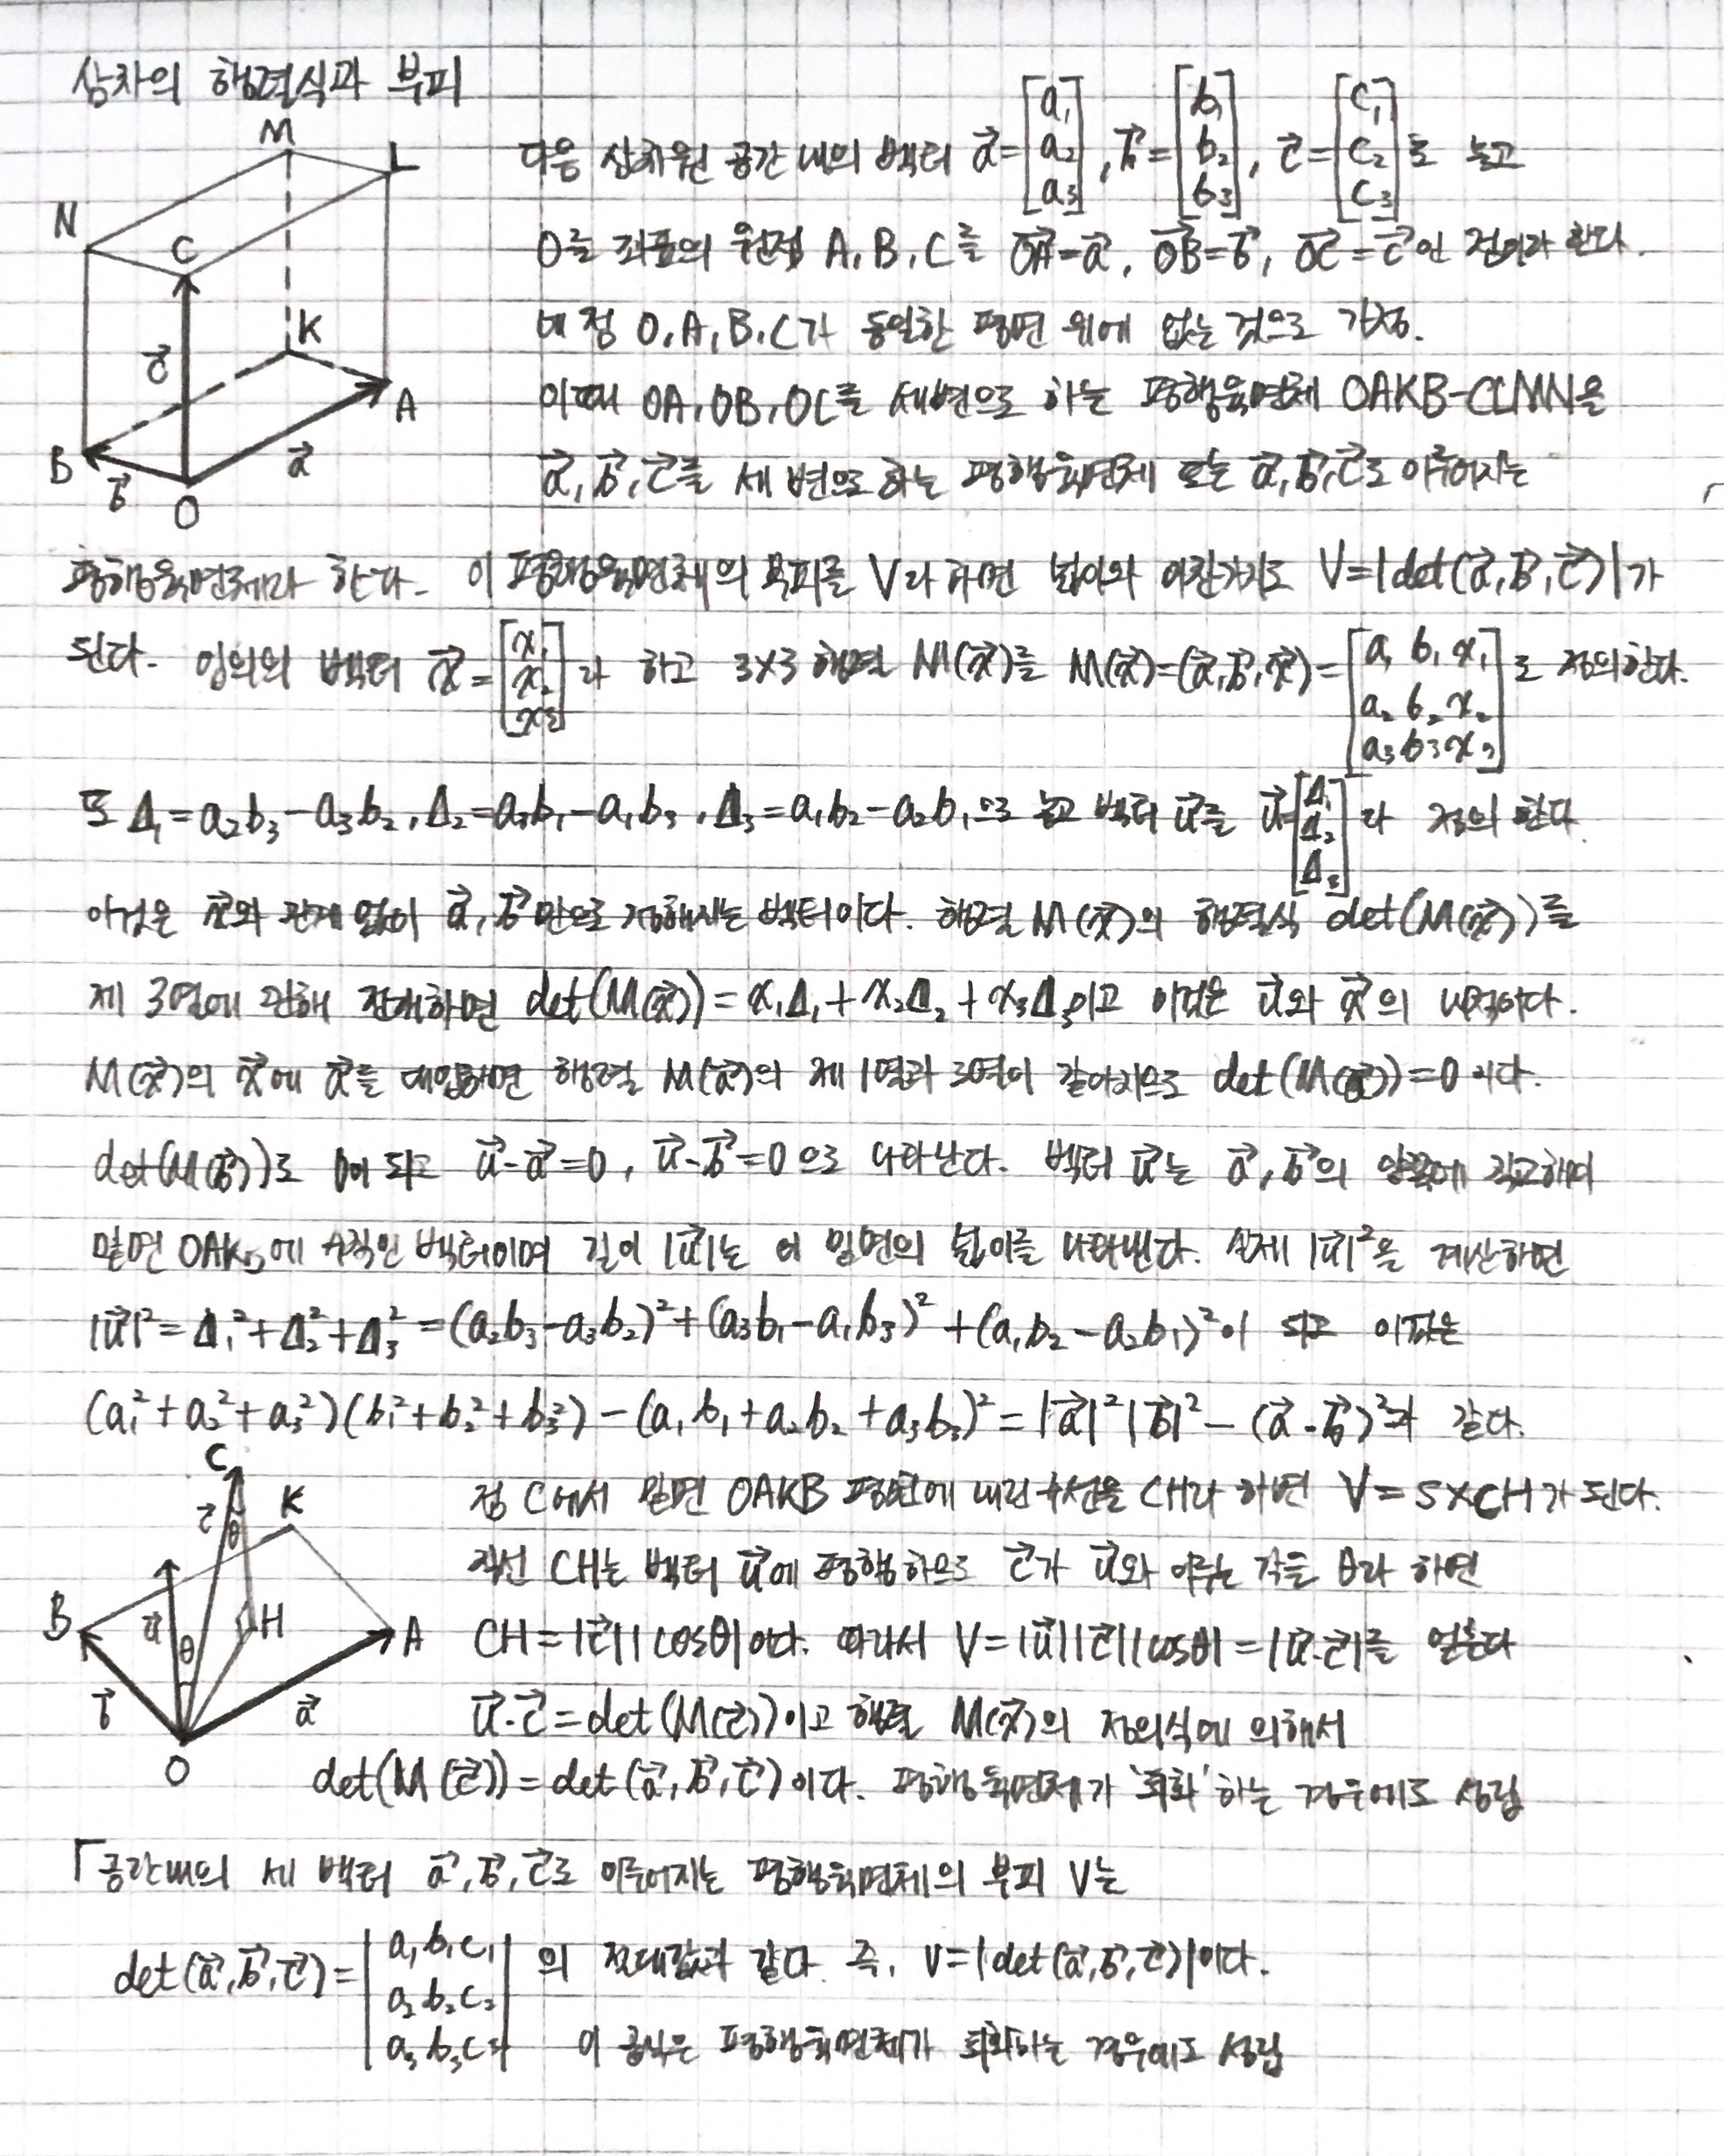 삼차의 행렬식과 부피
M
L
N
C
K
c⃗
A
B
a⃗
b⃗
O
다음 삼차원 공간 내의 벡터 a⃗=[a₁ a₂ a₃], b⃗=[b₁ b₂ b₃], c⃗=[c₁ c₂ c₃]로 놓고
O를 좌표의 원점 A, B, C를 OA⃗=a⃗, OB⃗=b⃗, OC⃗=c⃗인 점이라 한다.
네 점 O, A, B, C가 동일한 평면 위에 없는 것으로 가정.
이때 OA, OB, OC를 세변으로 하는 평행육면체 OAKB-CLMN을
a⃗, b⃗, c⃗를 세 변으로 하는 평행육면체 또는 a⃗, b⃗, c⃗로 이루어지는
평행육면체라 한다. 이 평행육면체의 부피를 V라 하면 넓이와 마찬가지로 V=|det(a⃗, b⃗, c⃗)|가
된다. 임의의 벡터 x⃗=[x₁ x₂ x₃]라 하고 3×3 행렬 M(x⃗)를 M(x⃗)=(a⃗, b⃗, x⃗)=[a₁ b₁ x₁ a₂ b₂ x₂ a₃ b₃ x₃]로 정의한다.
또 Δ₁=a₂b₃-a₃b₂, Δ₂=a₃b₁-a₁b₃, Δ₃=a₁b₂-a₂b₁으로 놓고 벡터 u⃗를 u⃗=[Δ₁ Δ₂ Δ₃]라 정의 한다
이것은 x⃗와 관계 없이 a⃗, b⃗만으로 정해지는 벡터이다. 행렬 M(x⃗)의 행렬식 det(M(x⃗))를
제 3열에 관해 전개하면 det(M(x⃗))=x₁Δ₁+x₂Δ₂+x₃Δ₃이고 이것은 u⃗와 x⃗의 내적이다.
M(x⃗)의 x⃗에 a⃗를 대입하면 행렬 M(a⃗)의 제 1열과 3열이 같아지므로 det(M(a⃗))=0이다.
det(M(b⃗))도 0이 되고 u⃗·a⃗=0, u⃗·b⃗=0으로 나타난다. 벡터 u⃗는 a⃗, b⃗의 양쪽에 직교하며
밑면 OAKB에 수직인 벡터이며 길이 |u⃗|는 이 밑면의 넓이를 나타낸다. 실제 |u⃗|²을 계산하면
|u⃗|²=Δ₁²+Δ₂²+Δ₃²=(a₂b₃-a₃b₂)²+(a₃b₁-a₁b₃)²+(a₁b₂-a₂b₁)²이 되고 이값은
(a₁²+a₂²+a₃²)(b₁²+b₂²+b₃²)-(a₁b₁+a₂b₂+a₃b₃)²=|a⃗|²|b⃗|²-(a⃗·b⃗)²과 같다.
C
K
c⃗
θ
B
u⃗
H
A
θ
b⃗
a⃗
O
점 C에서 밑면 OAKB 평면에 내린 수선을 CH라 하면 V=S×CH가 된다.
직선 CH는 벡터 u⃗에 평행하므로 c⃗가 u⃗와 이루는 각을 θ라 하면
CH=|c⃗||cosθ|이다. 따라서 V=|u⃗||c⃗||cosθ|=|u⃗·c⃗|를 얻는다
u⃗·c⃗=det(M(c⃗))이고 행렬 M(x⃗)의 정의식에 의해서
det(M(c⃗))=det(a⃗, b⃗, c⃗)이다. 평행육면체가 '퇴화'하는 경우에도 성립
「공간내의 세 벡터 a⃗, b⃗, c⃗로 이루어지는 평행육면체의 부피 V는
det(a⃗, b⃗, c⃗)=|a₁ b₁ c₁ a₂ b₂ c₂ a₃ b₃ c₃|의 절대값과 같다. 즉, V=|det(a⃗, b⃗, c⃗)|이다.
이 공식은 평행육면체가 퇴화하는 경우에도 성립